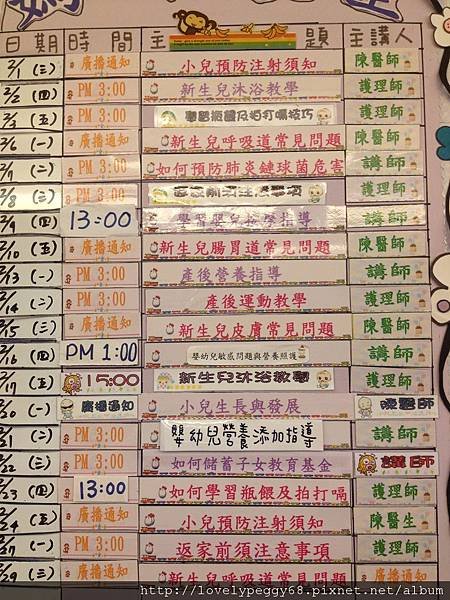 日期 時間 主 題 主講人
2/1 (三) 廣播通知 小兒預防注射須知 陳醫師
2/2 (四) PM 3:00 新生兒沐浴教學 護理師
2/3 (五) PM 3:00 學習瓶餵及拍打嗝技巧 護理師
2/6 (一) 廣播通知 新生兒呼吸道常見問題 陳醫師
2/7 (二) 廣播通知 如何預防肺炎鏈球菌危害 講師
2/8 (三) PM 3:00 返家前須注意事項 護理師
2/9 (四) 13:00 學習嬰兒按摩指導 講師
2/10 (五) 廣播通知 新生兒腸胃道常見問題 陳醫師
2/13 (一) PM 3:00 產後營養指導 講師
2/14 (二) PM 3:00 產後運動教學 護理師
2/15 (三) 廣播通知 新生兒皮膚常見問題 陳醫師
2/16 (四) PM 1:00 嬰幼兒敏感問題與營養照護 講師
2/17 (五) 15:00 新生兒沐浴教學 護理師
2/20 (一) 廣播通知 小兒生長與發展 陳醫師
2/21 (二) PM 3:00 嬰幼兒營養添加指導 講師
2/22 (三) PM 3:00 如何儲蓄子女教育基金 講師
2/23 (四) 13:00 如何學習瓶餵及拍打嗝 護理師
2/24 (五) 廣播通知 小兒預防注射須知 陳醫生
2/27 (一) PM 3:00 返家前須注意事項 護理師
2/29 (三) 廣播通知 新生兒呼吸道常見問題
http://lovelypeggy68.pixnet.net/album